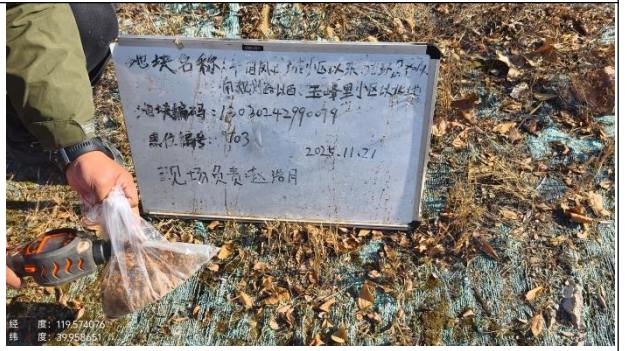 地块名称:
南规划路以西、玉峰里小区以北地块
地块编码:13030242990079
点位编号: T03
2025.11.21
现场负责:赵浩月
经 度: 119.574076
纬 度: 39.958651